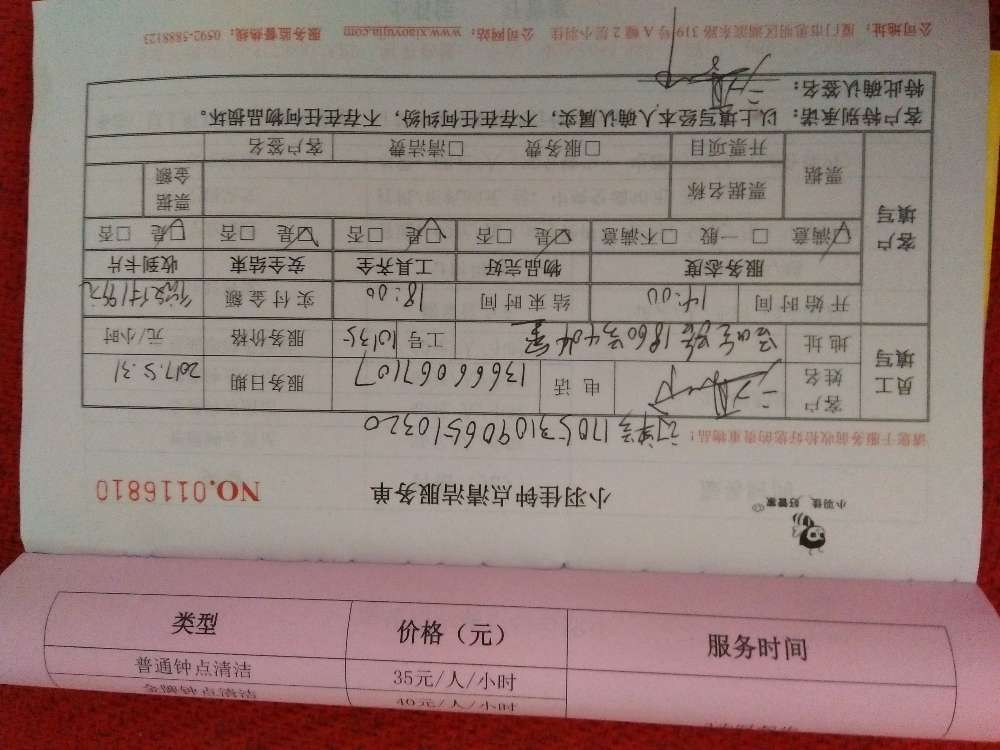 小羽佳 好管家
小羽佳钟点清洁服务单 NO.0116810
请您于服务前收拾好您的贵重物品！ 订单号170531090651 0320
员工填写 客户姓名 电话 13666067107 服务日期 2017.5.31
地址 1860号404室 工号 10135 服务价格 元/小时
开始时间 14:00 结束时间 18:00 实付金额
客户填写 服务态度 物品完好 工具齐全 安全结束 收到卡片
☑满意 □一般 □不满意 ☑是 □否 ☑是 □否 ☑是 □否 ☑是 □否
票据 票据名称 票据金额
开票项目 □服务费 □清洁费 客户签名
客户特别承诺：以上填写经本人确认属实，不存在任何纠纷，不存在任何物品损坏。
特此确认签名：
公司地址：厦门市思明区湖滨东路319号A幢2层小羽佳 公司网站：www.xiaoyujia.com 服务监督热线：0592-5888123
类型 价格（元） 服务时间
普通钟点清洁 35元/人/小时
金牌钟点清洁 40元/人/小时